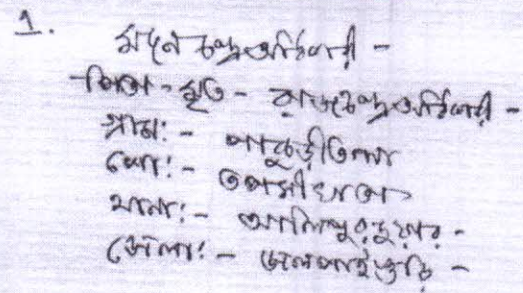 1. মনে চন্দ্র অধিকারী -
পিতা - মৃত - রাজচন্দ্র অধিকারী -
গ্রাম: - পাকুড়ীতলা
পো: - তপসীখাতা
থানা: - আলিপুরদুয়ার -
জেলা: - জলপাইগুড়ি -